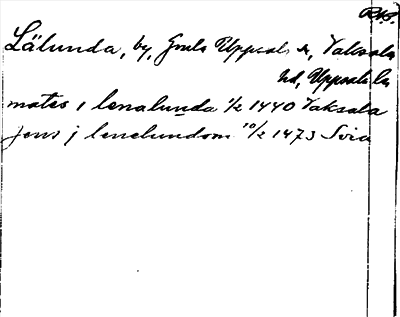 RAP.
Lälunda, by, Gamla Uppsala sn, Vaksala
hd, Uppsala län
mates i lenalunda ½ 1440 Vaksala
jens j lenelundom 10/2 1473 Svia